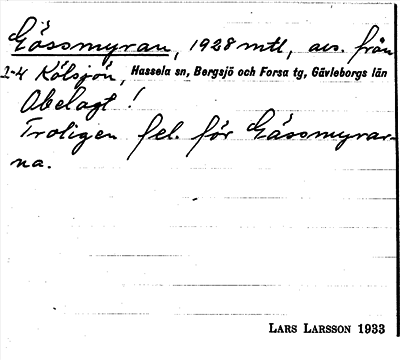 Gässmyran, 1928 mtl, avs. från
2-4 Kölsjön, Hassela sn, Bergsjö och Forsa tg, Gävleborgs län
Obelagt!
Troligen fel. för Gässmyrar-
na.
LARS LARSSON 1933